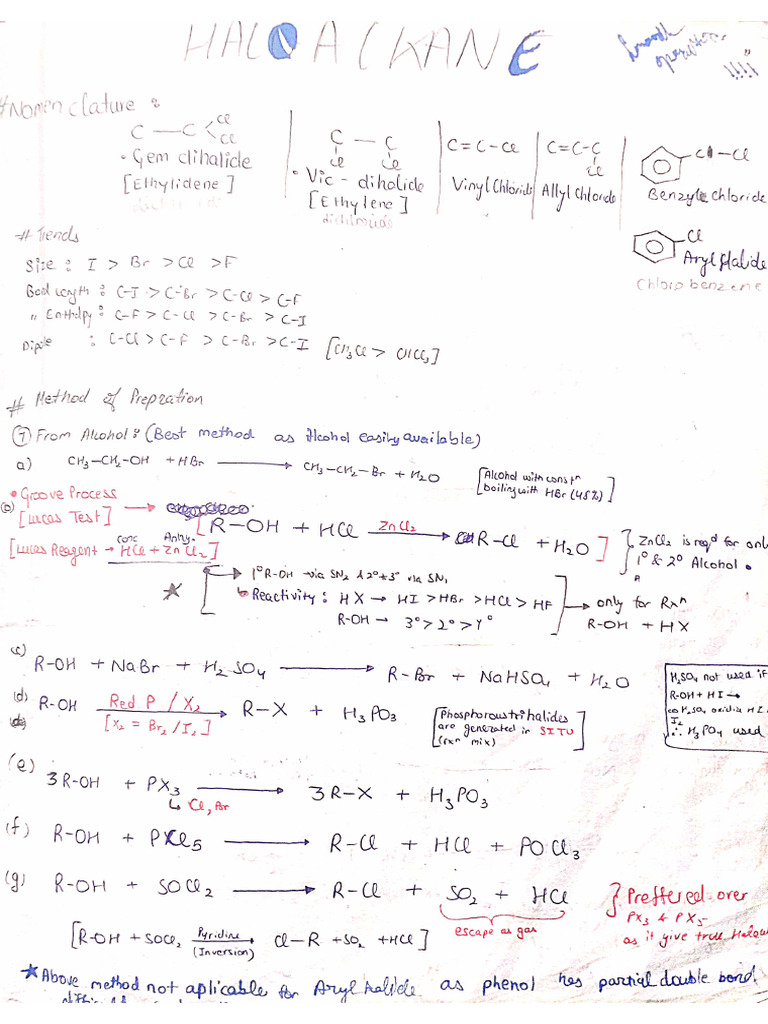 HALOALKANE
Smooth operation !!!!
#Nomenclature :
C — C < Cl Cl
• Gem dihalide
[Ethylidene]
C — C
Cl Cl
• Vic - dihalide
[Ethylene]
dichloride
C=C-Cl
Vinyl Chloride
C=C-C
Cl
Allyl Chloride
C—Cl
Benzyle chloride
Cl
Aryl Halide
Chlorobenzene
# Trends
Size : I > Br > Cl > F
Bond length : C-I > C-Br > C-Cl > C-F
" Enthalpy : C-F > C-Cl > C-Br > C-I
Dipole : C-Cl > C-F > C-Br > C-I [CH3Cl > CHCl3]
# Method of Prepration
① From Alcohol : (Best method as Alcohol easily available)
a) CH3-CH2-OH + HBr → CH3-CH2-Br + H2O [Alcohol with const^n boiling with HBr (48%)]
• Groove Process
(b) [Lucas Test] → [R-OH + HCl ZnCl2 → R-Cl + H2O] } ZnCl2 is req^d for only 1° & 2° Alcohol.
[Lucas Reagent → conc HCl + Anhy. ZnCl2]
★ 1° R-OH → via SN2 & 2° + 3° via SN1
Reactivity : HX → HI > HBr > HCl > HF
R-OH → 3° > 2° > 1°
→ only for Rx^n R-OH + HX
c) R-OH + NaBr + H2SO4 → R-Br + NaHSO4 + H2O
H2SO4 not used if
R-OH + HI →
H2SO4 oxid. HI
I2
∴ H3PO4 used
(d) R-OH Red P / X2 → R-X + H3PO3
[X2 = Br2 / I2]
[Phosphoroustrihalides are generated in SITU (rx^n mix)]
(e) 3R-OH + PX3 → 3R-X + H3PO3
↳ Cl, Br
(f) R-OH + PCl5 → R-Cl + HCl + POCl3
(g) R-OH + SOCl2 → R-Cl + SO2 + HCl
escape as gas
} Preffered over
PX3 & PX5
as it give true
[R-OH + SOCl2 Pyridine (Inversion) → Cl-R + SO2 + HCl]
★ Above method not aplicable for Aryl halide as phenol has partial double bond.